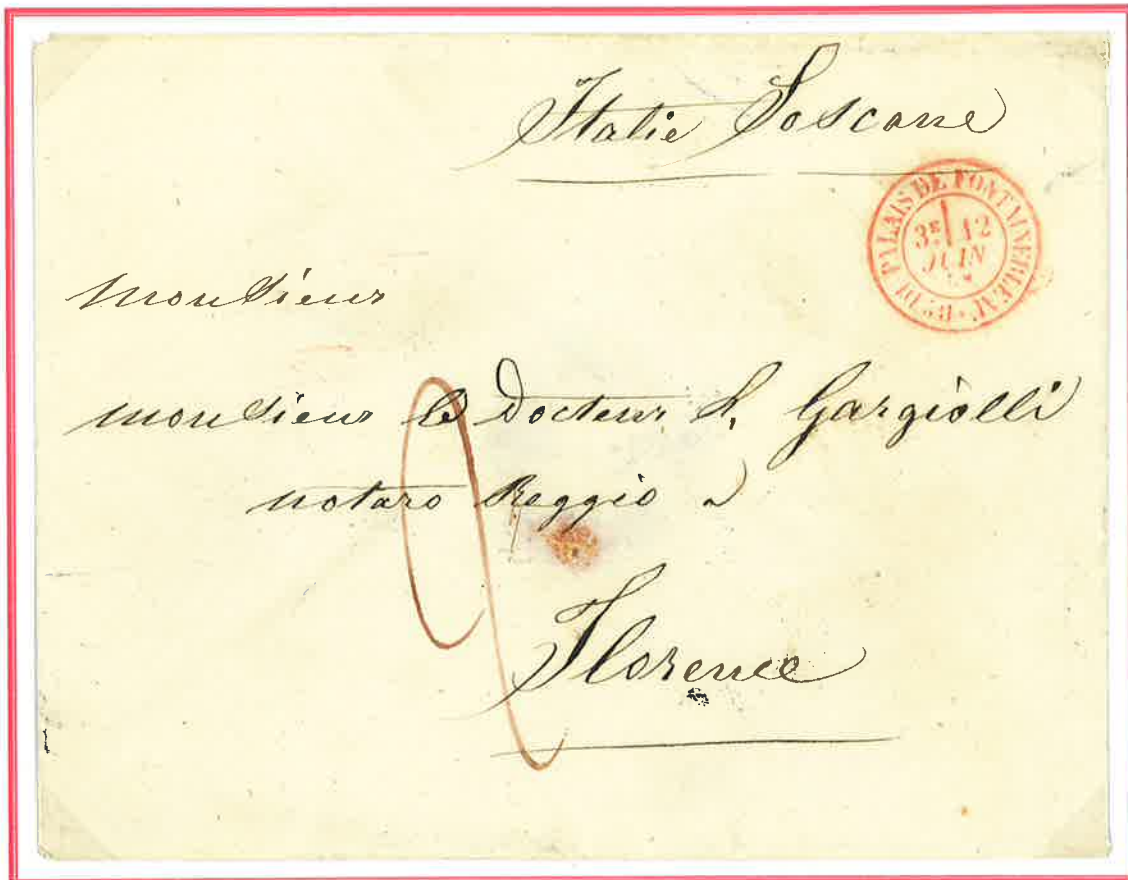 Italie Toscane
BAU DU PALAIS DE FONTAINEBLEAU
3E 12
JUIN
Monsieur
monsieur le Docteur Gargiolli
notaro Reggio a
Florence